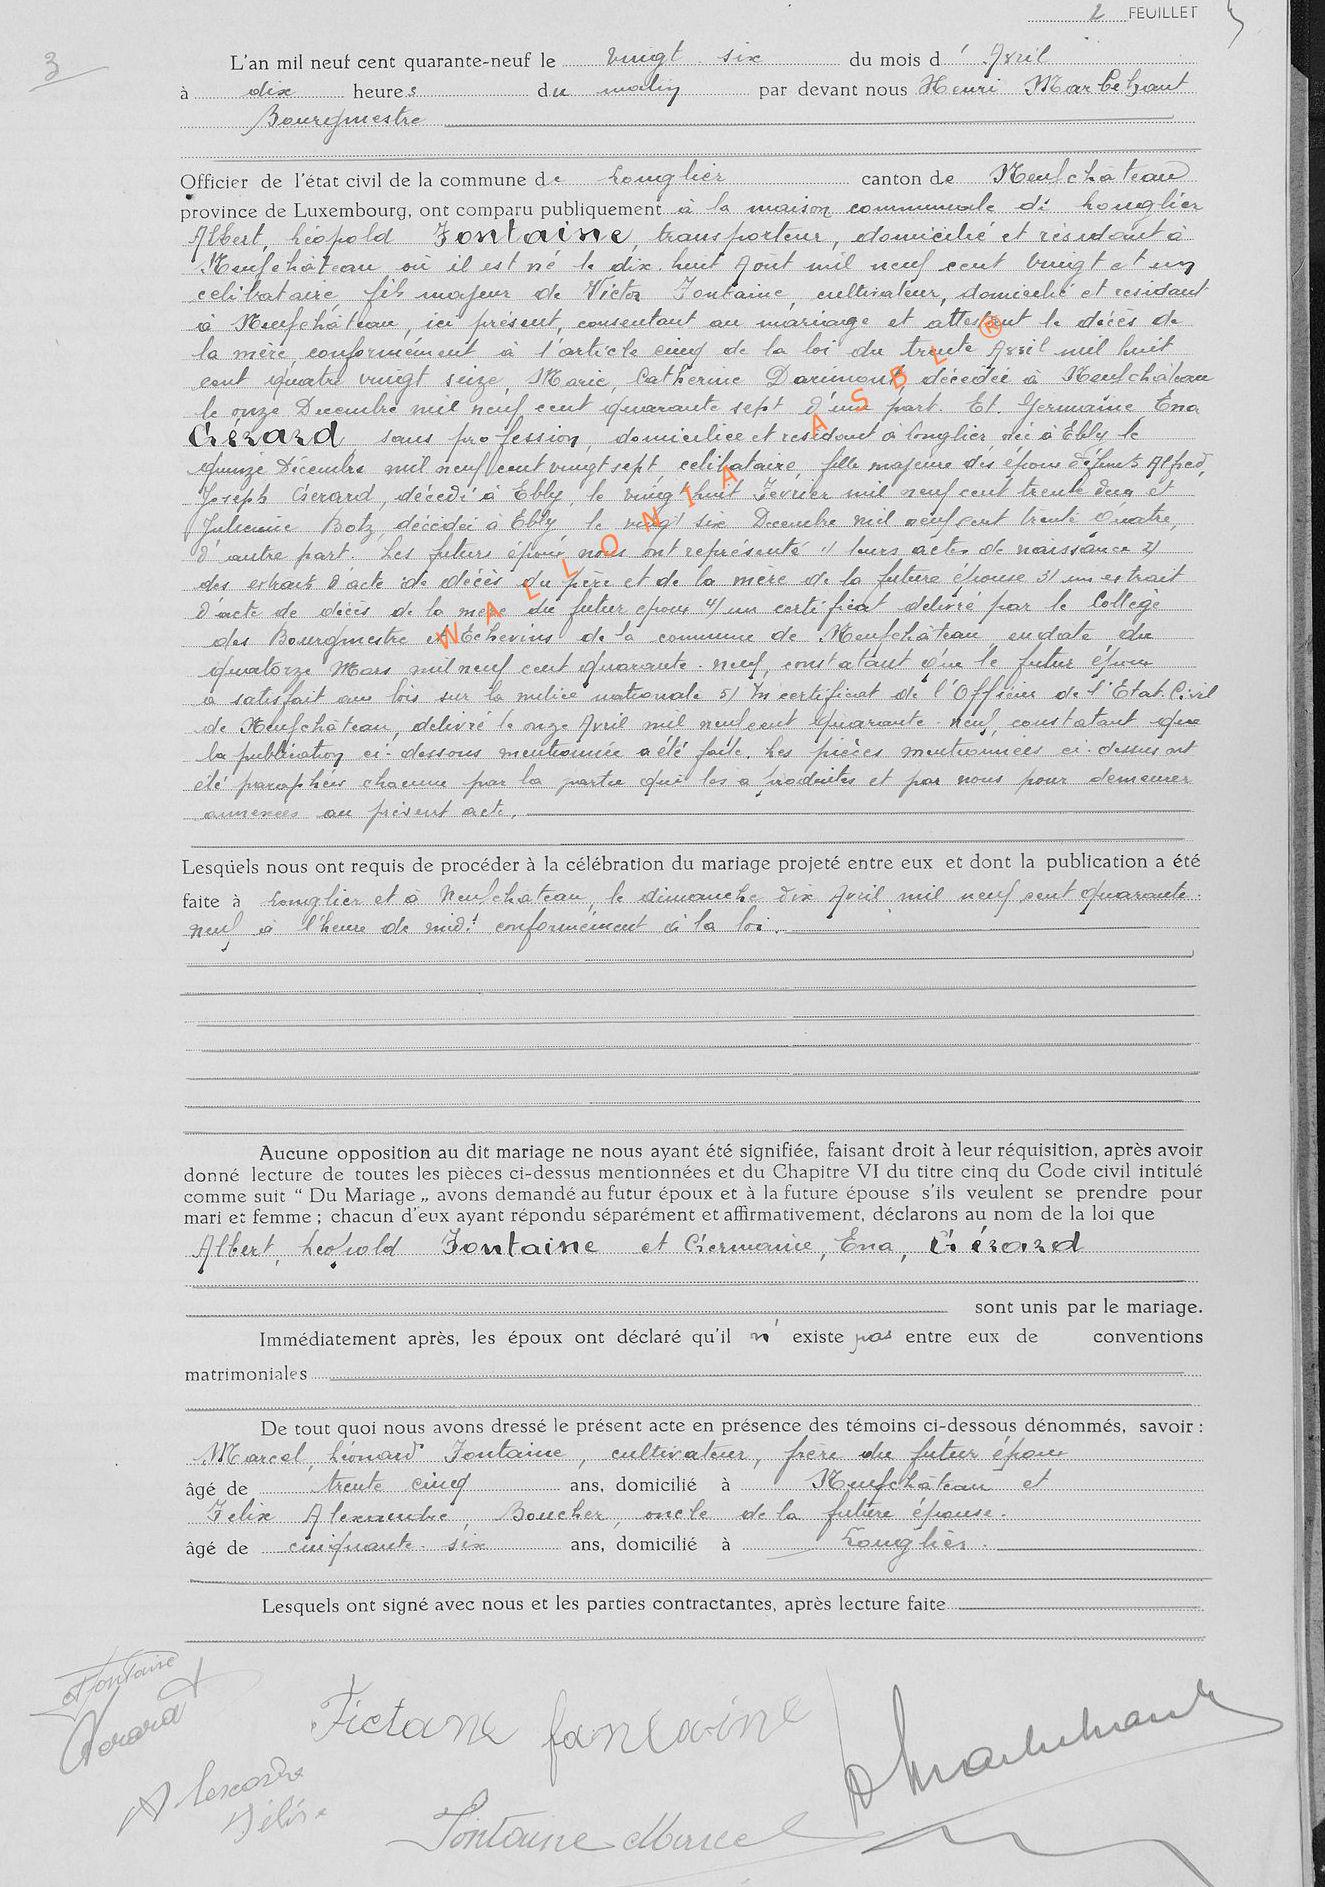 2 FEUILLET
3
L'an mil neuf cent quarante-neuf le vingt six du mois d' Avril
à dix heures du matin par devant nous Henri Marbehant
Bourgmestre
Officier de l'état civil de la commune de Longlier canton de Neufchâteau
province de Luxembourg, ont comparu publiquement à la maison communale de Longlier
Albert, Léopold Fontaine, transporteur, domicilié et résidant à
Neufchâteau où il est né le dix-huit Août mil neuf cent vingt et un
célibataire, fils majeur de Victor Fontaine, cultivateur, domicilié et résidant
à Neufchâteau, ici présent, consentant au mariage et attestant le décès de
la mère conformément à l'article cinq de la loi du trente Avril mil huit
cent quatre vingt seize, Marie, Catherine Darimont, décédée à Neufchâteau
le onze Decembre mil neuf cent quarante sept d'une part. Et Germaine, Ena
Gérard sans profession, domiciliée et résidant à Longlier née à Ebly le
quinze Décembre mil neuf cent vingt sept, célibataire, fille majeure des époux défunts Alfred,
Joseph Gérard, décédé à Ebly, le vingt huit Février mil neuf cent trente deux et
Julienne Botz, décédée à Ebly le vingt six Decembre mil neuf cent trente quatre,
d'autre part. Les futurs époux nous ont représenté 1/ leurs actes de naissance 2/
des extraits d'acte de décès du père et de la mère de la future épouse 3/ un extrait
d'acte de décès de la mère du futur époux 4/ un certificat délivré par le Collège
des Bourgmestre et Echevins de la commune de Neufchâteau en date du
quatorze Mars mil neuf cent quarante-neuf, constatant que le futur époux
a satisfait aux lois sur la milice nationale 5/ Un certificat de l'Officier de l'Etat-Civil
de Neufchâteau, délivré le onze Avril mil neuf cent quarante-neuf, constatant que
la publication ci-dessous mentionnée a été faite. Les pièces mentionnées ci-dessus ont
été paraphées chacune par la partie qui les a produites et par nous pour demeurer
annexées au présent acte.
Lesquels nous ont requis de procéder à la célébration du mariage projeté entre eux et dont la publication a été
faite à Longlier et à Neufchâteau, le dimanche dix Avril mil neuf cent quarante-
neuf à l'heure de midi conformément à la loi.
Aucune opposition au dit mariage ne nous ayant été signifiée, faisant droit à leur réquisition, après avoir
donné lecture de toutes les pièces ci-dessus mentionnées et du Chapitre VI du titre cinq du Code civil intitulé
comme suit “ Du Mariage „ avons demandé au futur époux et à la future épouse s'ils veulent se prendre pour
mari et femme ; chacun d'eux ayant répondu séparément et affirmativement, déclarons au nom de la loi que
Albert, Léopold Fontaine et Germaine, Ena, Gérard
sont unis par le mariage.
Immédiatement après, les époux ont déclaré qu'il n' existe pas entre eux de conventions
matrimoniales
De tout quoi nous avons dressé le présent acte en présence des témoins ci-dessous dénommés, savoir :
Marcel, Léonard Fontaine, cultivateur, frère du futur époux
âgé de trente cinq ans, domicilié à Neufchâteau et
Felix Alexandre, Boucher, oncle de la future épouse.
âgé de cinquante-six ans, domicilié à Longlier.
Lesquels ont signé avec nous et les parties contractantes, après lecture faite
WALLONIA ASBL ®
Fontaine
Gerard
Fictane fontaine
HMarbehant
Alexandre
Félix
Fontaine Marcel